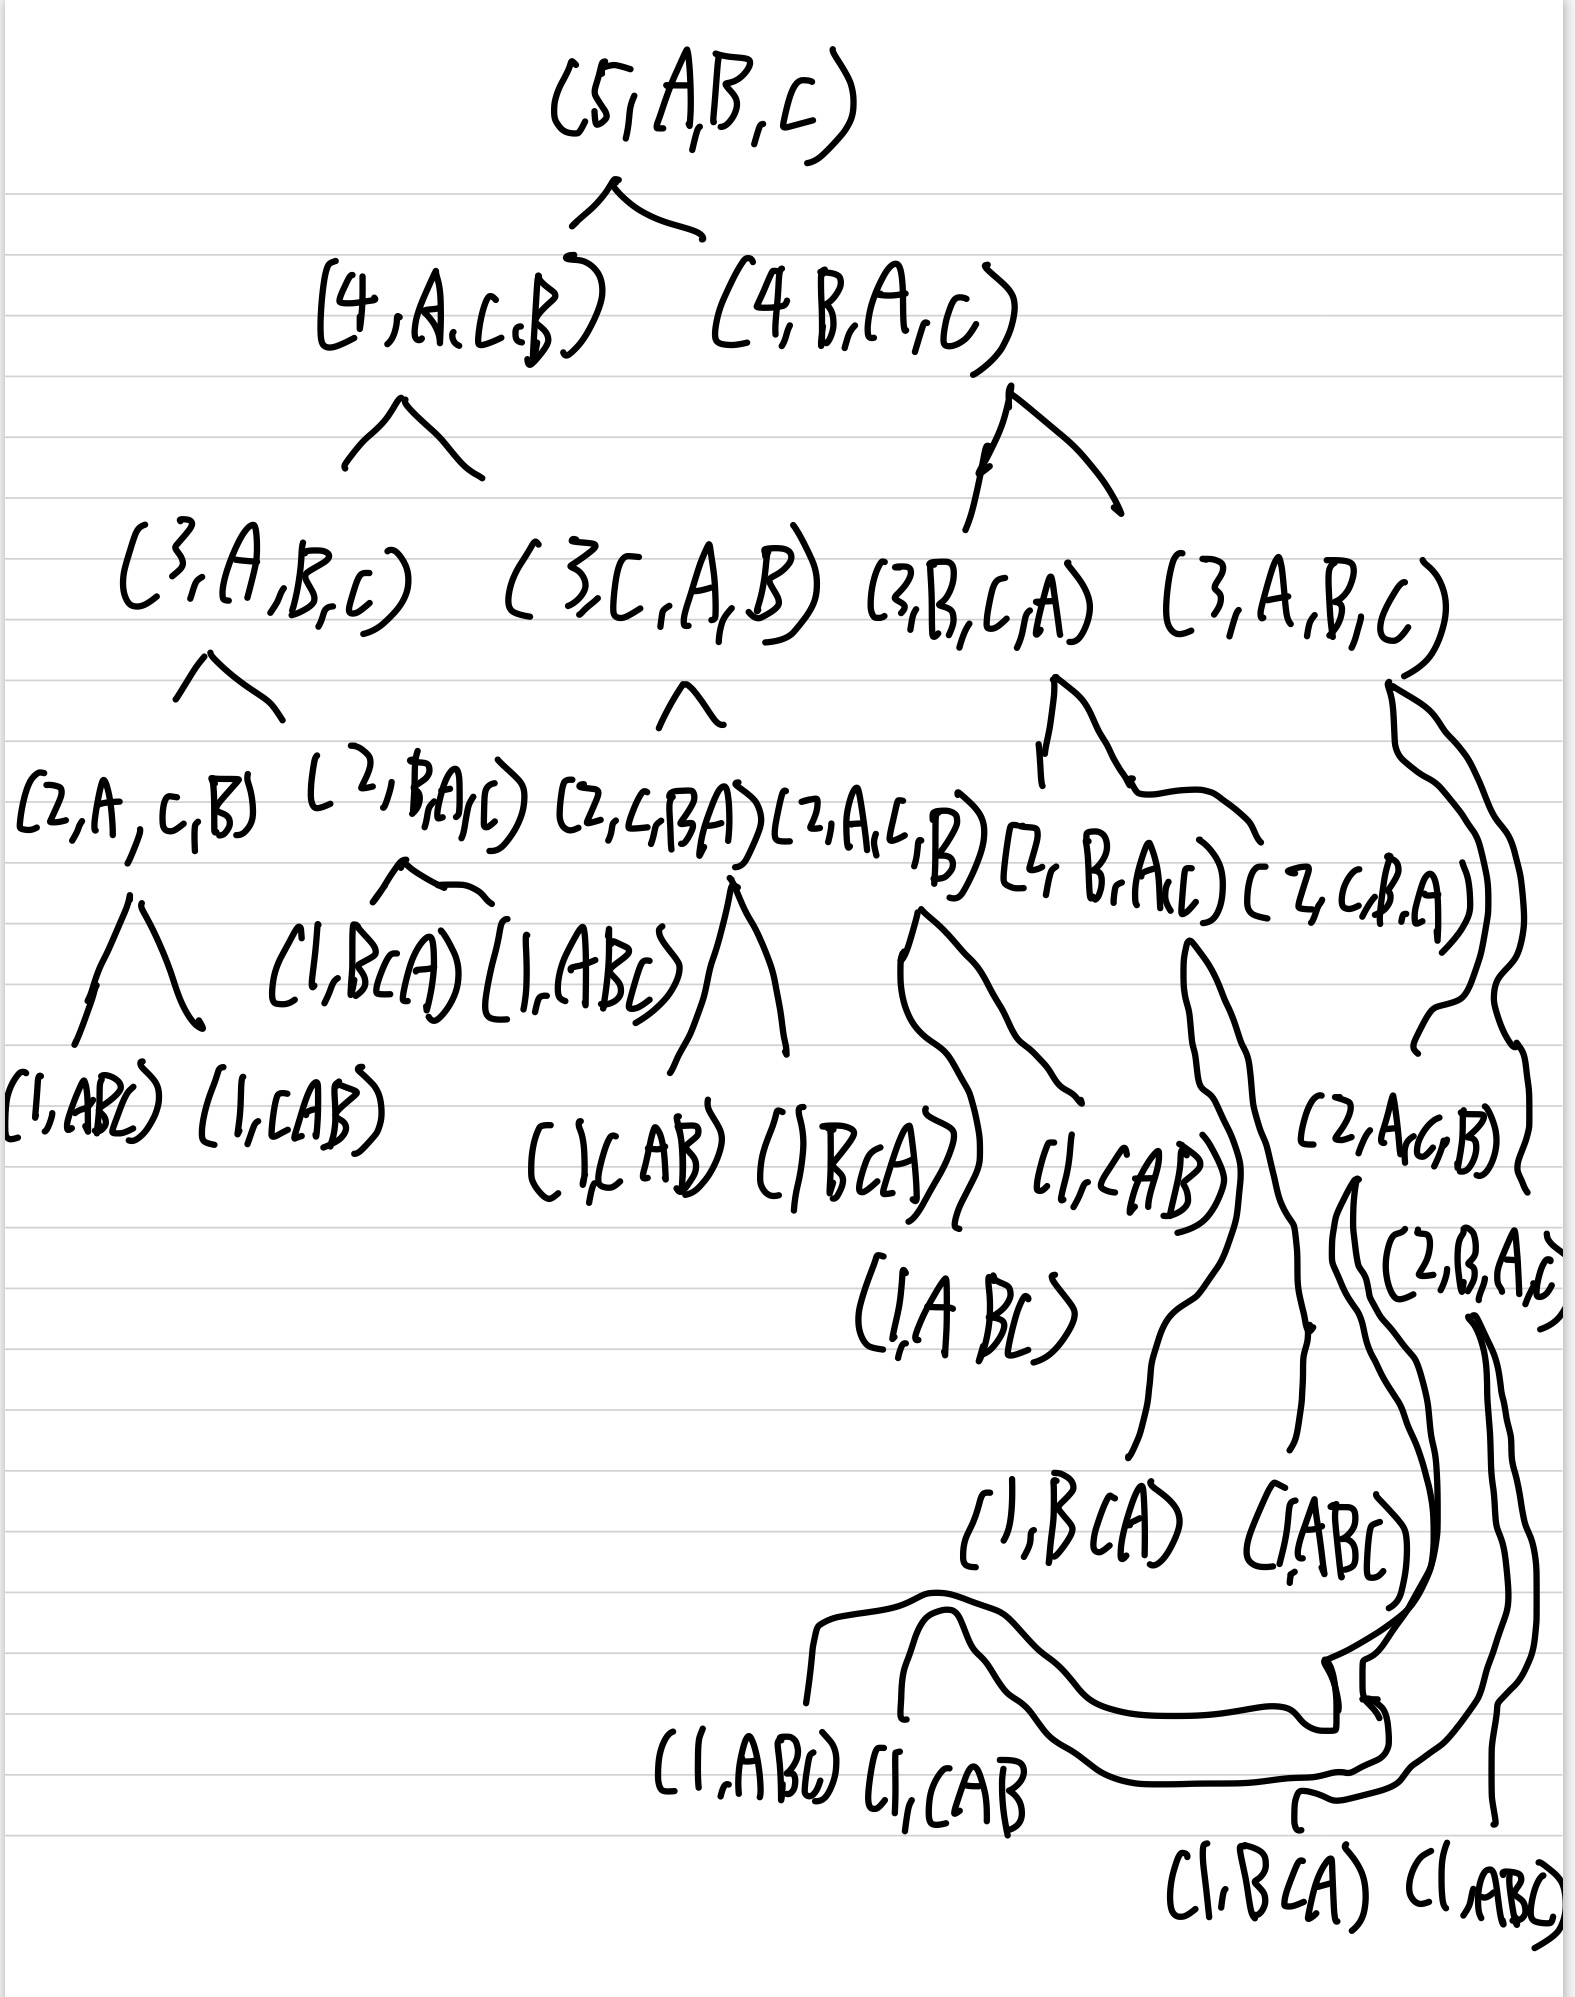 (5,A,B,C)
(4,A,C,B) (4,B,A,C)
(3,A,B,C) (3,C,A,B) (3,B,C,A) (3,A,B,C)
(2,A,C,B) (2,B,A,C) (2,C,B,A) (2,A,C,B) (2,B,A,C) (2,C,B,A)
(1,BCA) (1,ABC)
(1,ABC) (1,CAB) (1,CAB) (1BCA) (1,CAB) (2,A,C,B)
(1,ABC) (2,B,A,C)
(1,BCA) (1,ABC)
(1,ABC) (1,CAB
(1,BCA) (1,ABC)